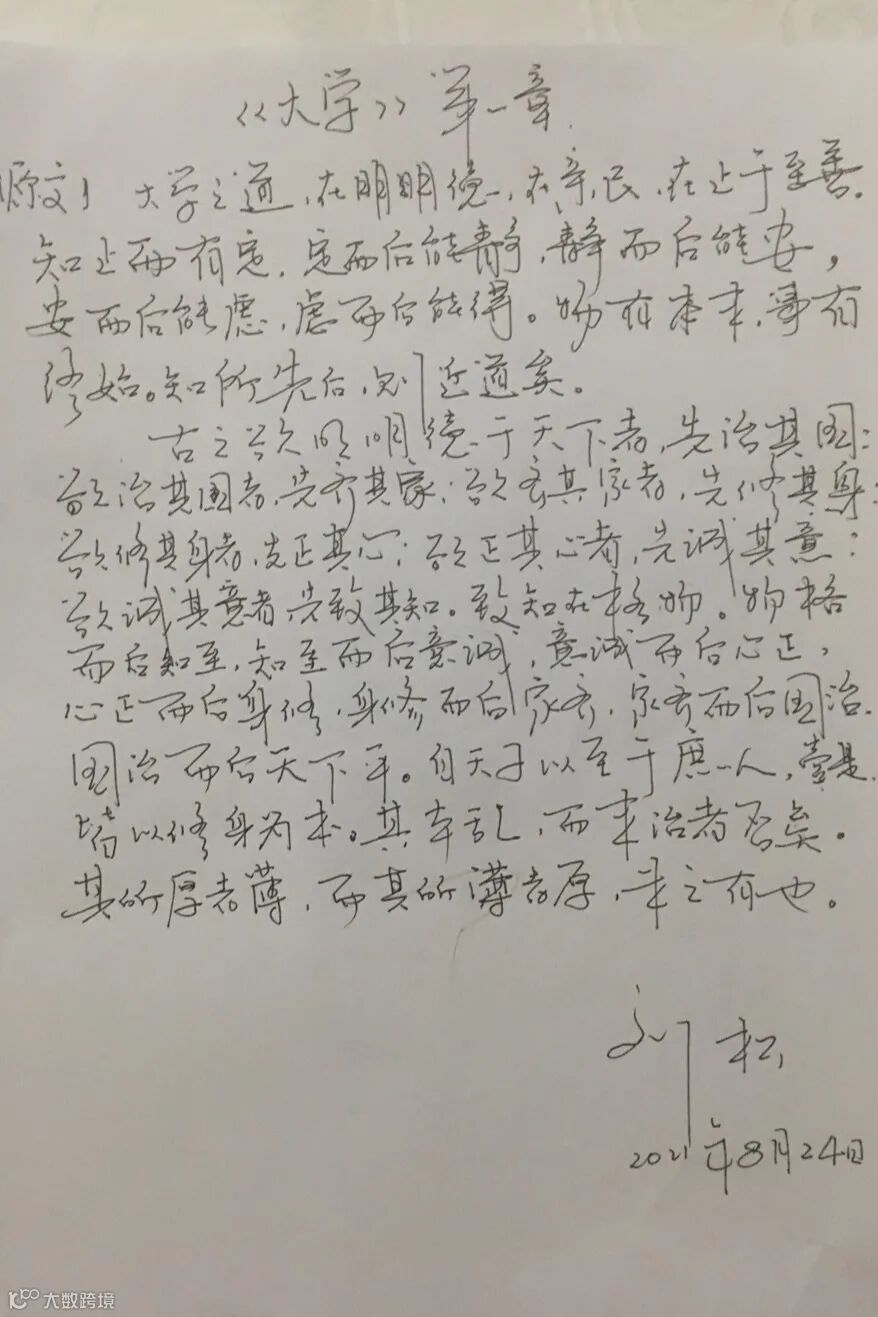 《大学》第一章
原文】 大学之道,在明明德,在亲民,在止于至善.
知止而有定,定而后能静,静而后能安,
安而后能虑,虑而后能得。物有本末,事有
终始。知所先后,则近道矣。
古之欲明明德于天下者,先治其国;
欲治其国者,先齐其家;欲齐其家者,先修其身;
欲修其身者,先正其心;欲正其心者,先诚其意;
欲诚其意者先致其知。致知在格物。物格
而后知至,知至而后意诚,意诚而后心正,
心正而后身修,身修而后家齐,家齐而后国治.
国治而后天下平。自天子以至于庶人,壹是
皆以修身为本。其本乱,而末治者否矣。
其所厚者薄,而其所薄者厚,未之有也。
刘松
2021年8月24日
大数跨境